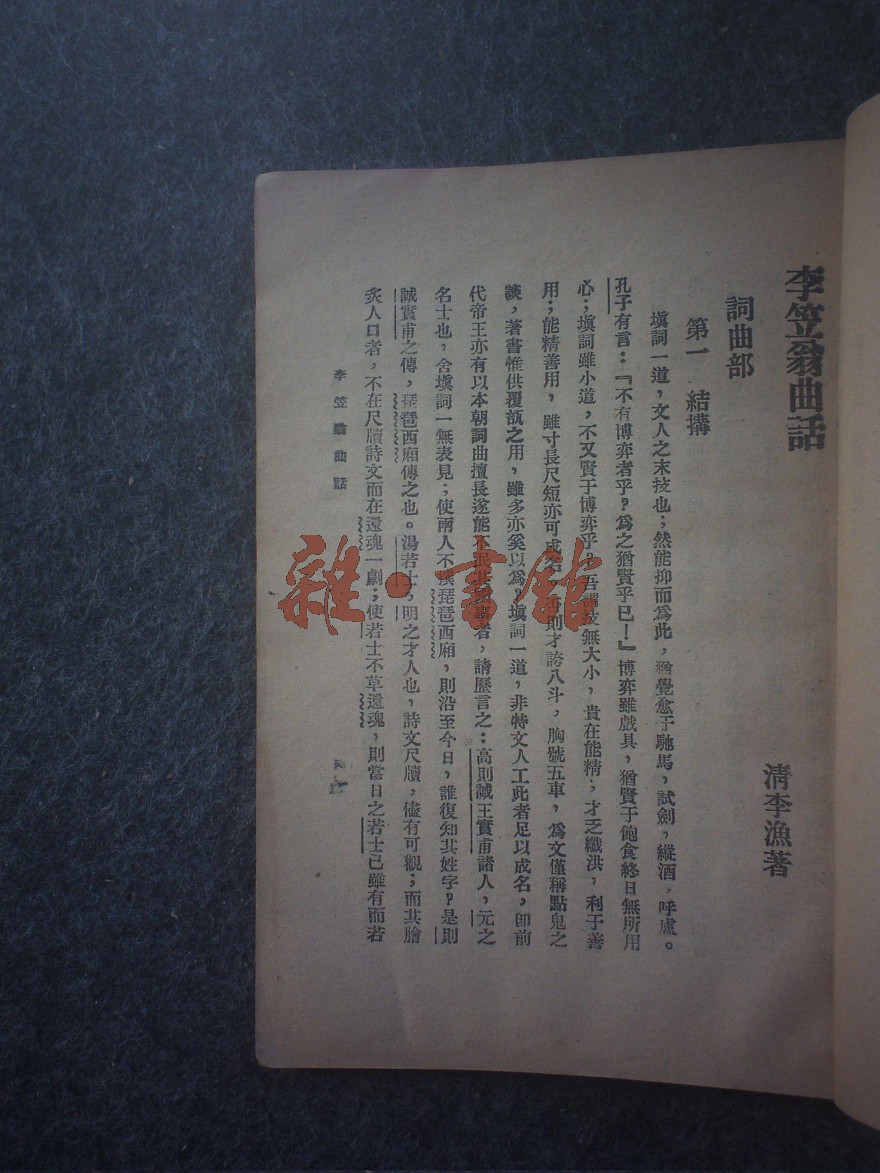 李笠翁曲話
清李漁著
詞曲部
第一 結搆
塡詞一道，文人之末技也；然能抑而爲此，猶覺愈于馳馬，試劍，縱酒，呼盧。
孔子有言：『不有博弈者乎？爲之猶賢乎已！』博弈雖戲具，猶賢于飽食終日無所用
心；塡詞雖小道，不又賢于博弈乎？吾謂技無大小，貴在能精；才乏纖洪，利于善
用；能精善用，雖寸長尺短亦可成名。否則才誇八斗，胸號五車，爲文僅稱點鬼之
談，著書惟供覆瓿之用，雖多亦奚以爲？塡詞一道，非特文人工此者足以成名，卽前
代帝王亦有以本朝詞曲擅長遂能不泯其國事者，請歷言之：高則誠王實甫諸人，元之
名士也，舍塡詞一無表見；使兩人不撰琵琶西廂，則沿至今日，誰復知其姓字？是則
誠實甫之傳，琵琶西廂傳之也。湯若士，明之才人也，詩文尺牘，儘有可觀；而其膾
炙人口者，不在尺牘詩文而在還魂一劇；使若士不草還魂，則當日之若士已雖有而若
李笠翁曲話
雜·書館